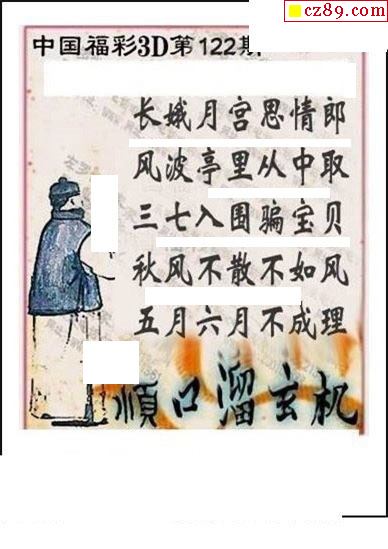 cz89.com
中国福彩3D第122期
长娥月宫思情郎
风波亭里从中取
三七入围骗宝贝
秋风不散不如风
五月六月不成理
顺口溜玄机